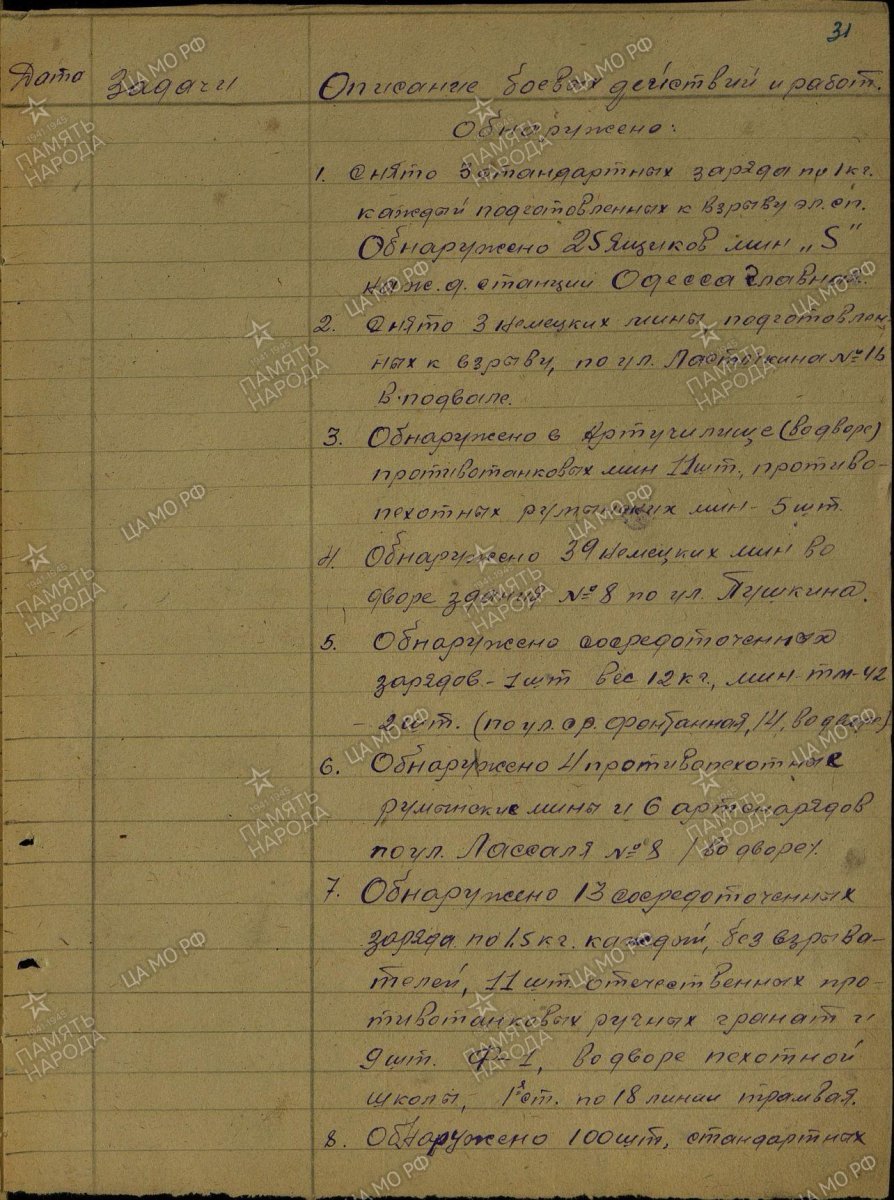 31
Дата Задачи Описание боевых действий и работ.
Обнаружено:
1. Снято 3 стандартных заряда по 1 кг.
каждый подготовленных к взрыву эл. сп.
Обнаружено 25 ящиков мин „S"
на ж.д. станции Одесса Главная.
2. Снято 3 немецких мины подготовлен-
ных к взрыву, по ул. Ласточкина №16
в подвале.
3. Обнаружено в Артучилище (во дворе)
противотанковых мин 11 шт., противо-
пехотных румынских мин - 5 шт.
4. Обнаружено 39 немецких мин во
дворе здания №8 по ул. Пушкина.
5. Обнаружено сосредоточенных
зарядов - 1 шт вес 12 кг., мин тм-42
- 2 шт. (по ул. ср. Фонтанная, 14, во дворе)
6. Обнаружено 4 противопехотные
румынские мины и 6 артснарядов
по ул. Лассаля №8 /во дворе/.
7. Обнаружено 13 сосредоточенных
заряда по 1,5 кг. каждый, без взрыва-
телей, 11 шт. отечественных про-
тивотанковых ручных гранат и
9 шт. Ф-1, во дворе пехотной
школы, 1я ст. по 18 линии трамвая.
8. Обнаружено 100 шт, стандартных
ЦА МО РФ
1941-1945
ПАМЯТЬ
НАРОДА